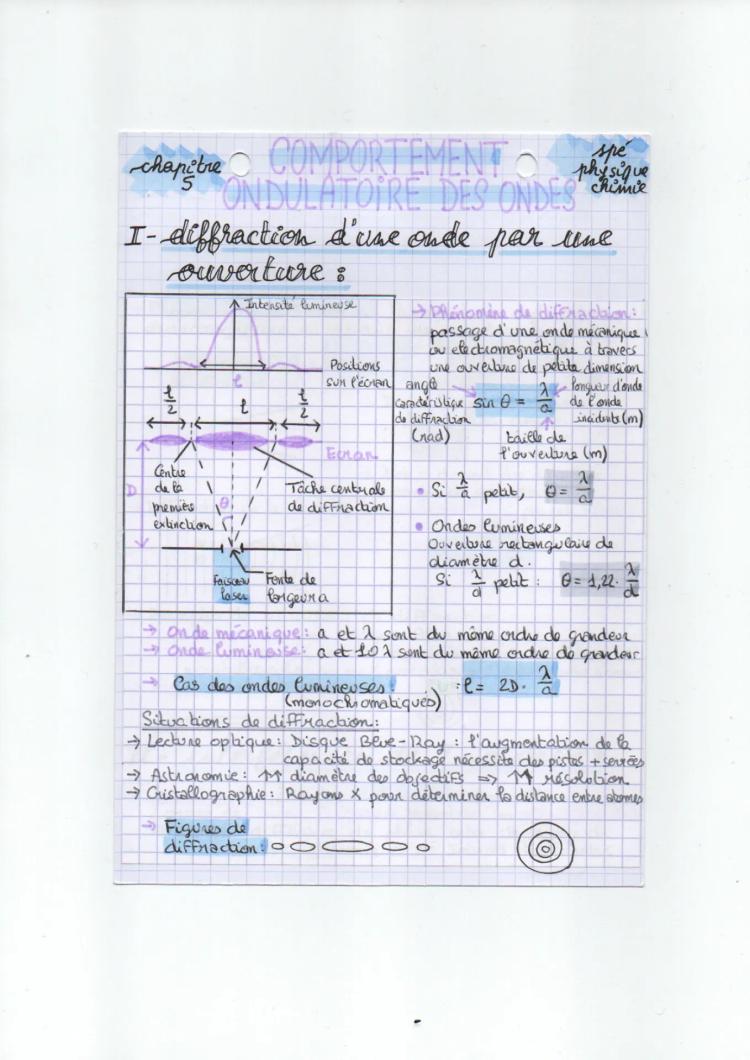 chapitre
5
COMPORTEMENT
ONDULATOIRE DES ONDES
spé
physique
chimie
I- diffraction d'une onde par une
ouverture :
Intensité lumineuse
Positions
sur l'écran
l
l/2
l
l/2
Ecran
Centre
de la
première
extinction
D
θ
Tâche centrale
de diffraction
Faisceau
laser
Fente de
largeur a
→ Phénomène de diffraction :
passage d'une onde mécanique
ou electromagnétique à travers
une ouverture de petite dimension
angle
caractéristique
de diffraction
(rad)
sin θ = λ/a
longueur d'onde
de l'onde
incidente (m)
taille de
l'ouverture (m)
• Si λ/a petit, θ = λ/a
• Ondes lumineuses
Ouverture rectangulaire de
diamètre d.
Si λ/d petit : θ = 1,22 · λ/d
→ Onde mécanique : a et λ sont du même ordre de grandeur
→ Onde lumineuse : a et 10λ sont du même ordre de grandeur
→ Cas des ondes lumineuses : l = 2D · λ/a
(monochromatiques)
Situations de diffraction :
→ Lecture optique : Disque Blue-Ray : l'augmentation de la
capacité de stockage nécessite des pistes + serrées
→ Astronomie : ↑↑ diamètre des objectifs => ↑↑ résolution
→ Cristallographie : Rayons X pour déterminer la distance entre atomes
→ Figures de
diffraction :